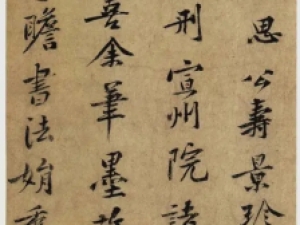 思公壽景珍
刑宣州院諸
余筆墨
瞻書法娟秀